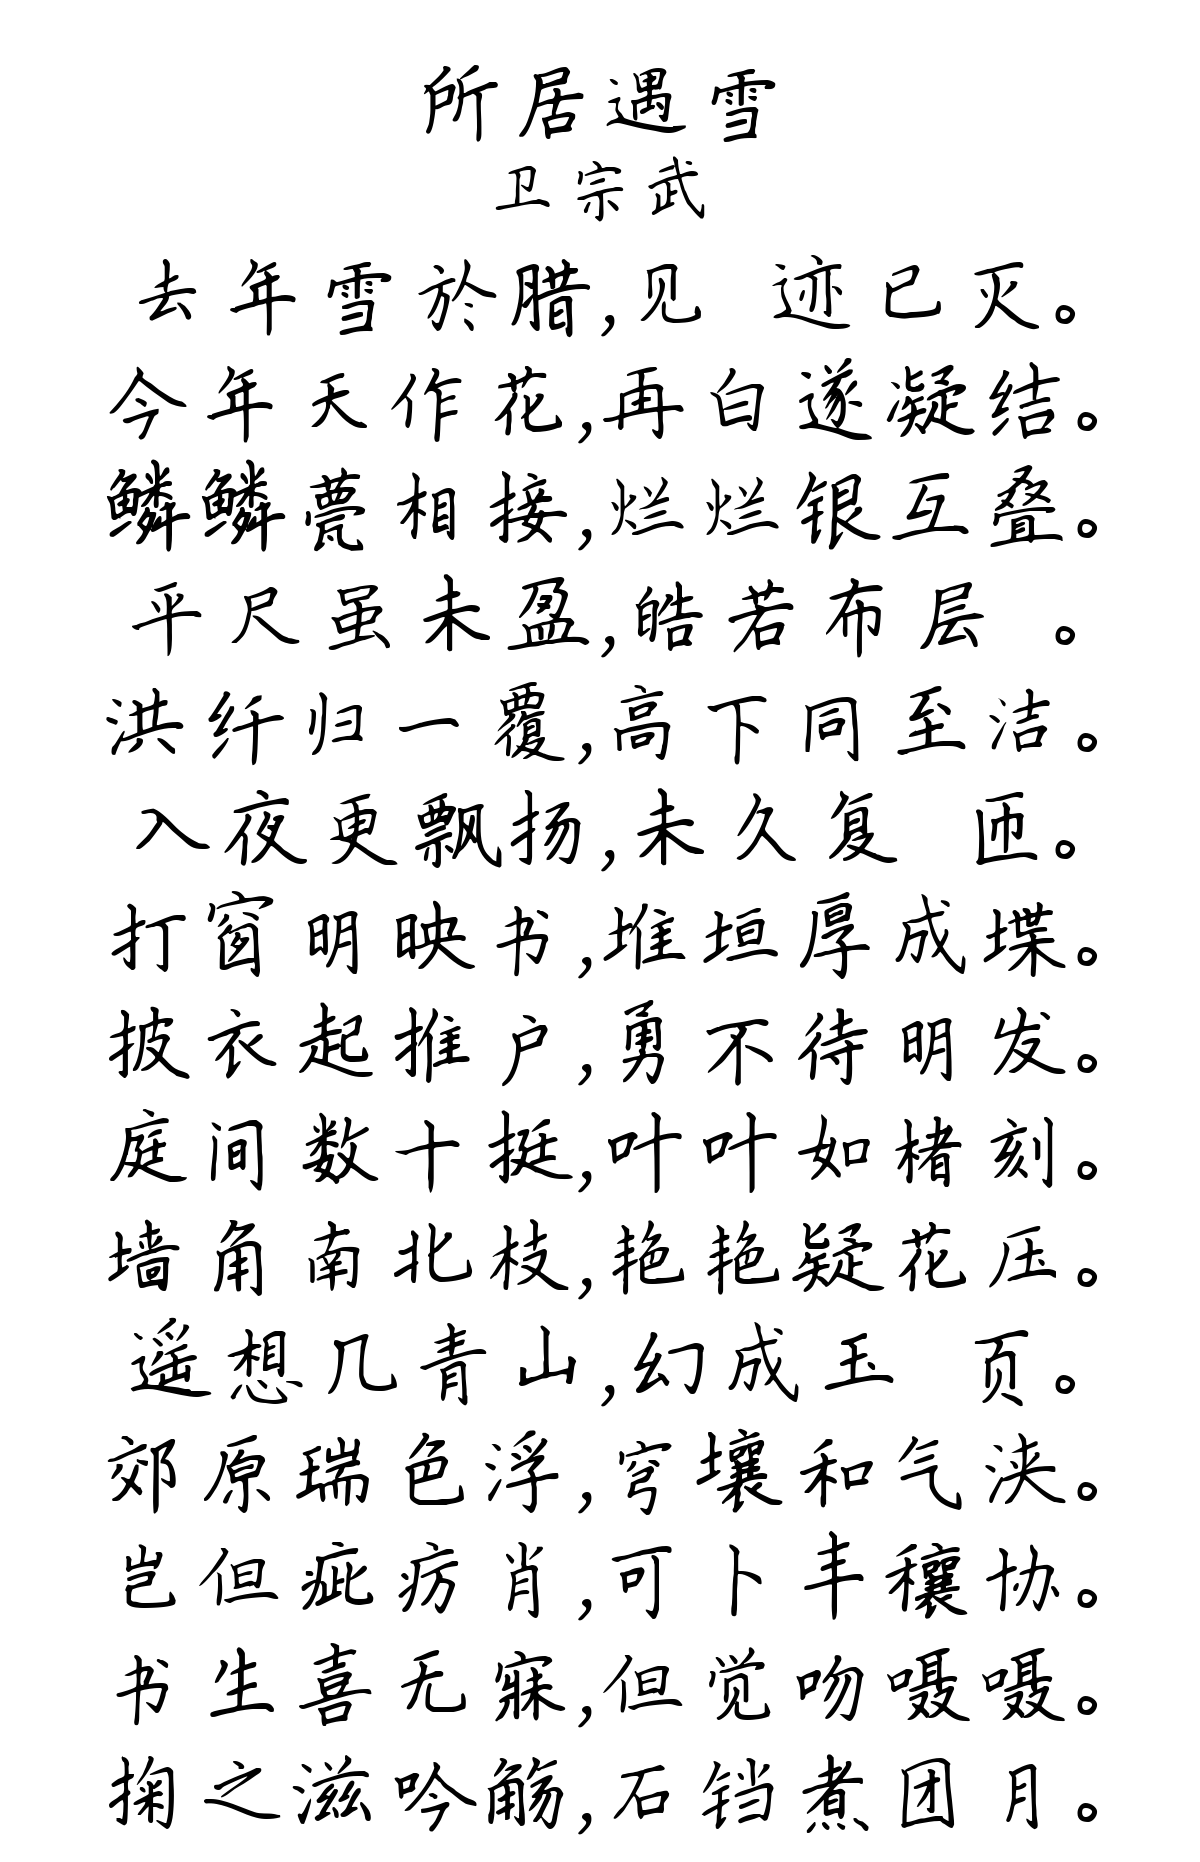 所居遇雪
卫宗武
去年雪於腊,见 迹已灭。
今年天作花,再白遂凝结。
鳞鳞甍相接,烂烂银互叠。
平尺虽未盈,皓若布层 。
洪纤归一覆,高下同至洁。
入夜更飘扬,未久复 匝。
打窗明映书,堆垣厚成堞。
披衣起推户,勇不待明发。
庭间数十挺,叶叶如楮刻。
墙角南北枝,艳艳疑花压。
遥想几青山,幻成玉 页。
郊原瑞色浮,穹壤和气浃。
岂但疵疠肖,可卜丰穰协。
书生喜无寐,但觉吻嗫嗫。
掬之滋吟觞,石铛煮团月。